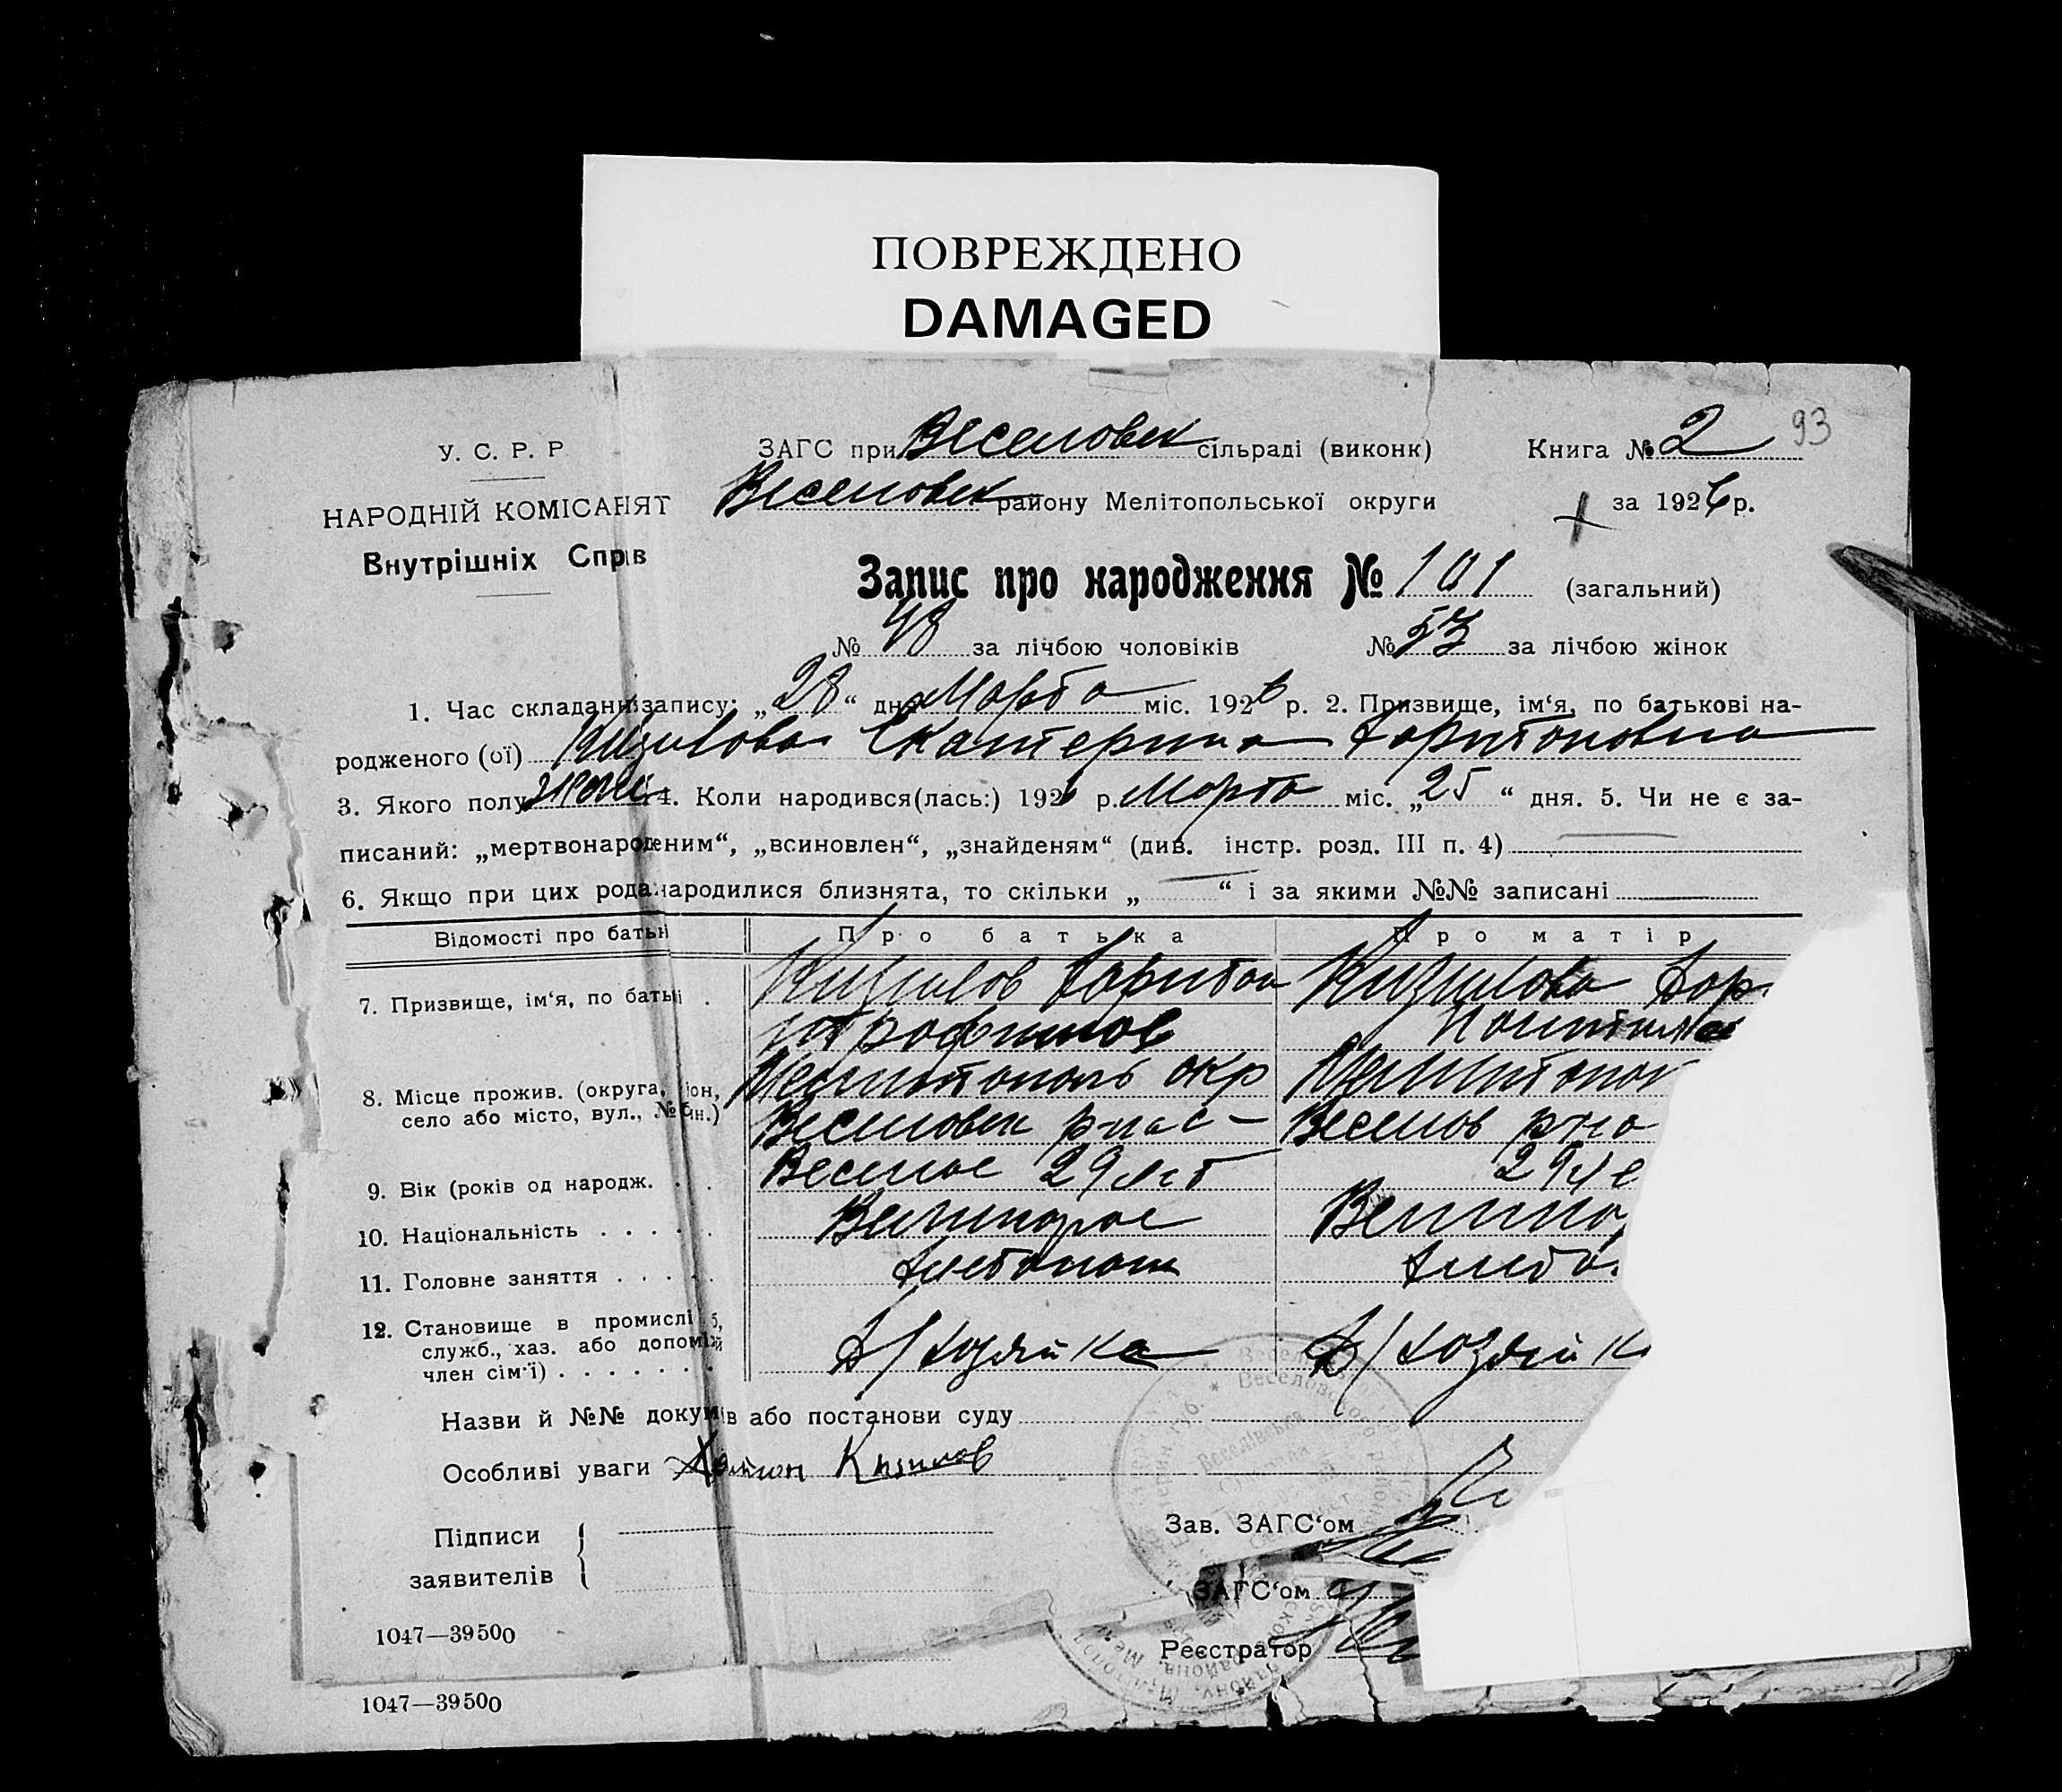 ПОВРЕЖДЕНО
DAMAGED
93
У. С. Р. Р.
ЗАГС при Веселовск сільраді (виконк)
Книга № 2
НАРОДНІЙ КОМІСАРІЯТ
Веселовск району Мелітопольської округи
за 1926 р.
Внутрішніх Справ
Запис про народження № 101 (загальний)
№ 48 за лічбою чоловіків № 53 за лічбою жінок
1. Час складання запису: „28“ дня Марта міс. 1926 р. 2. Призвище, ім‘я, по батькові на-
родженого (ої) Кизилова Екатерина Харитоновна
3. Якого полу жен 4. Коли народився(лась:) 1926 р. Марта міс. „25“ дня. 5. Чи не є за-
писаний: „мертвонародженим“, „всиновлен“, „знайденям“ (див. інстр. розд. III п. 4)
6. Якщо при цих родах народилися близнята, то скільки „ “ і за якими №№ записані
Відомості про батьк
Про батька
Про матір
7. Призвище, ім‘я, по батьк
Кизилов Харитон
Кизилова
Трофимов
8. Місце прожив. (округа, район,
село або місто, вул., № бн.)
Мелитополь окр
Мелитопол
Веселовск рна с-
Веселов рна
9. Вік (років од народж.
Веселое 29 лет
29 ле
10. Національність
Великорос
Велико
11. Головне заняття
Хлебопаш
Хлебо
12. Становище в промислі
служб., хаз. або допом
член сім‘ї)
Д/хозяйка
Д/хозяйк
Назви й №№ документів або постанови суду
Особливі уваги Харитон Кизилов
Підписи
заявителів
Зав. ЗАГС‘ом
ЗАГС‘ом
Реєстратор
1047—39500
1047—39500